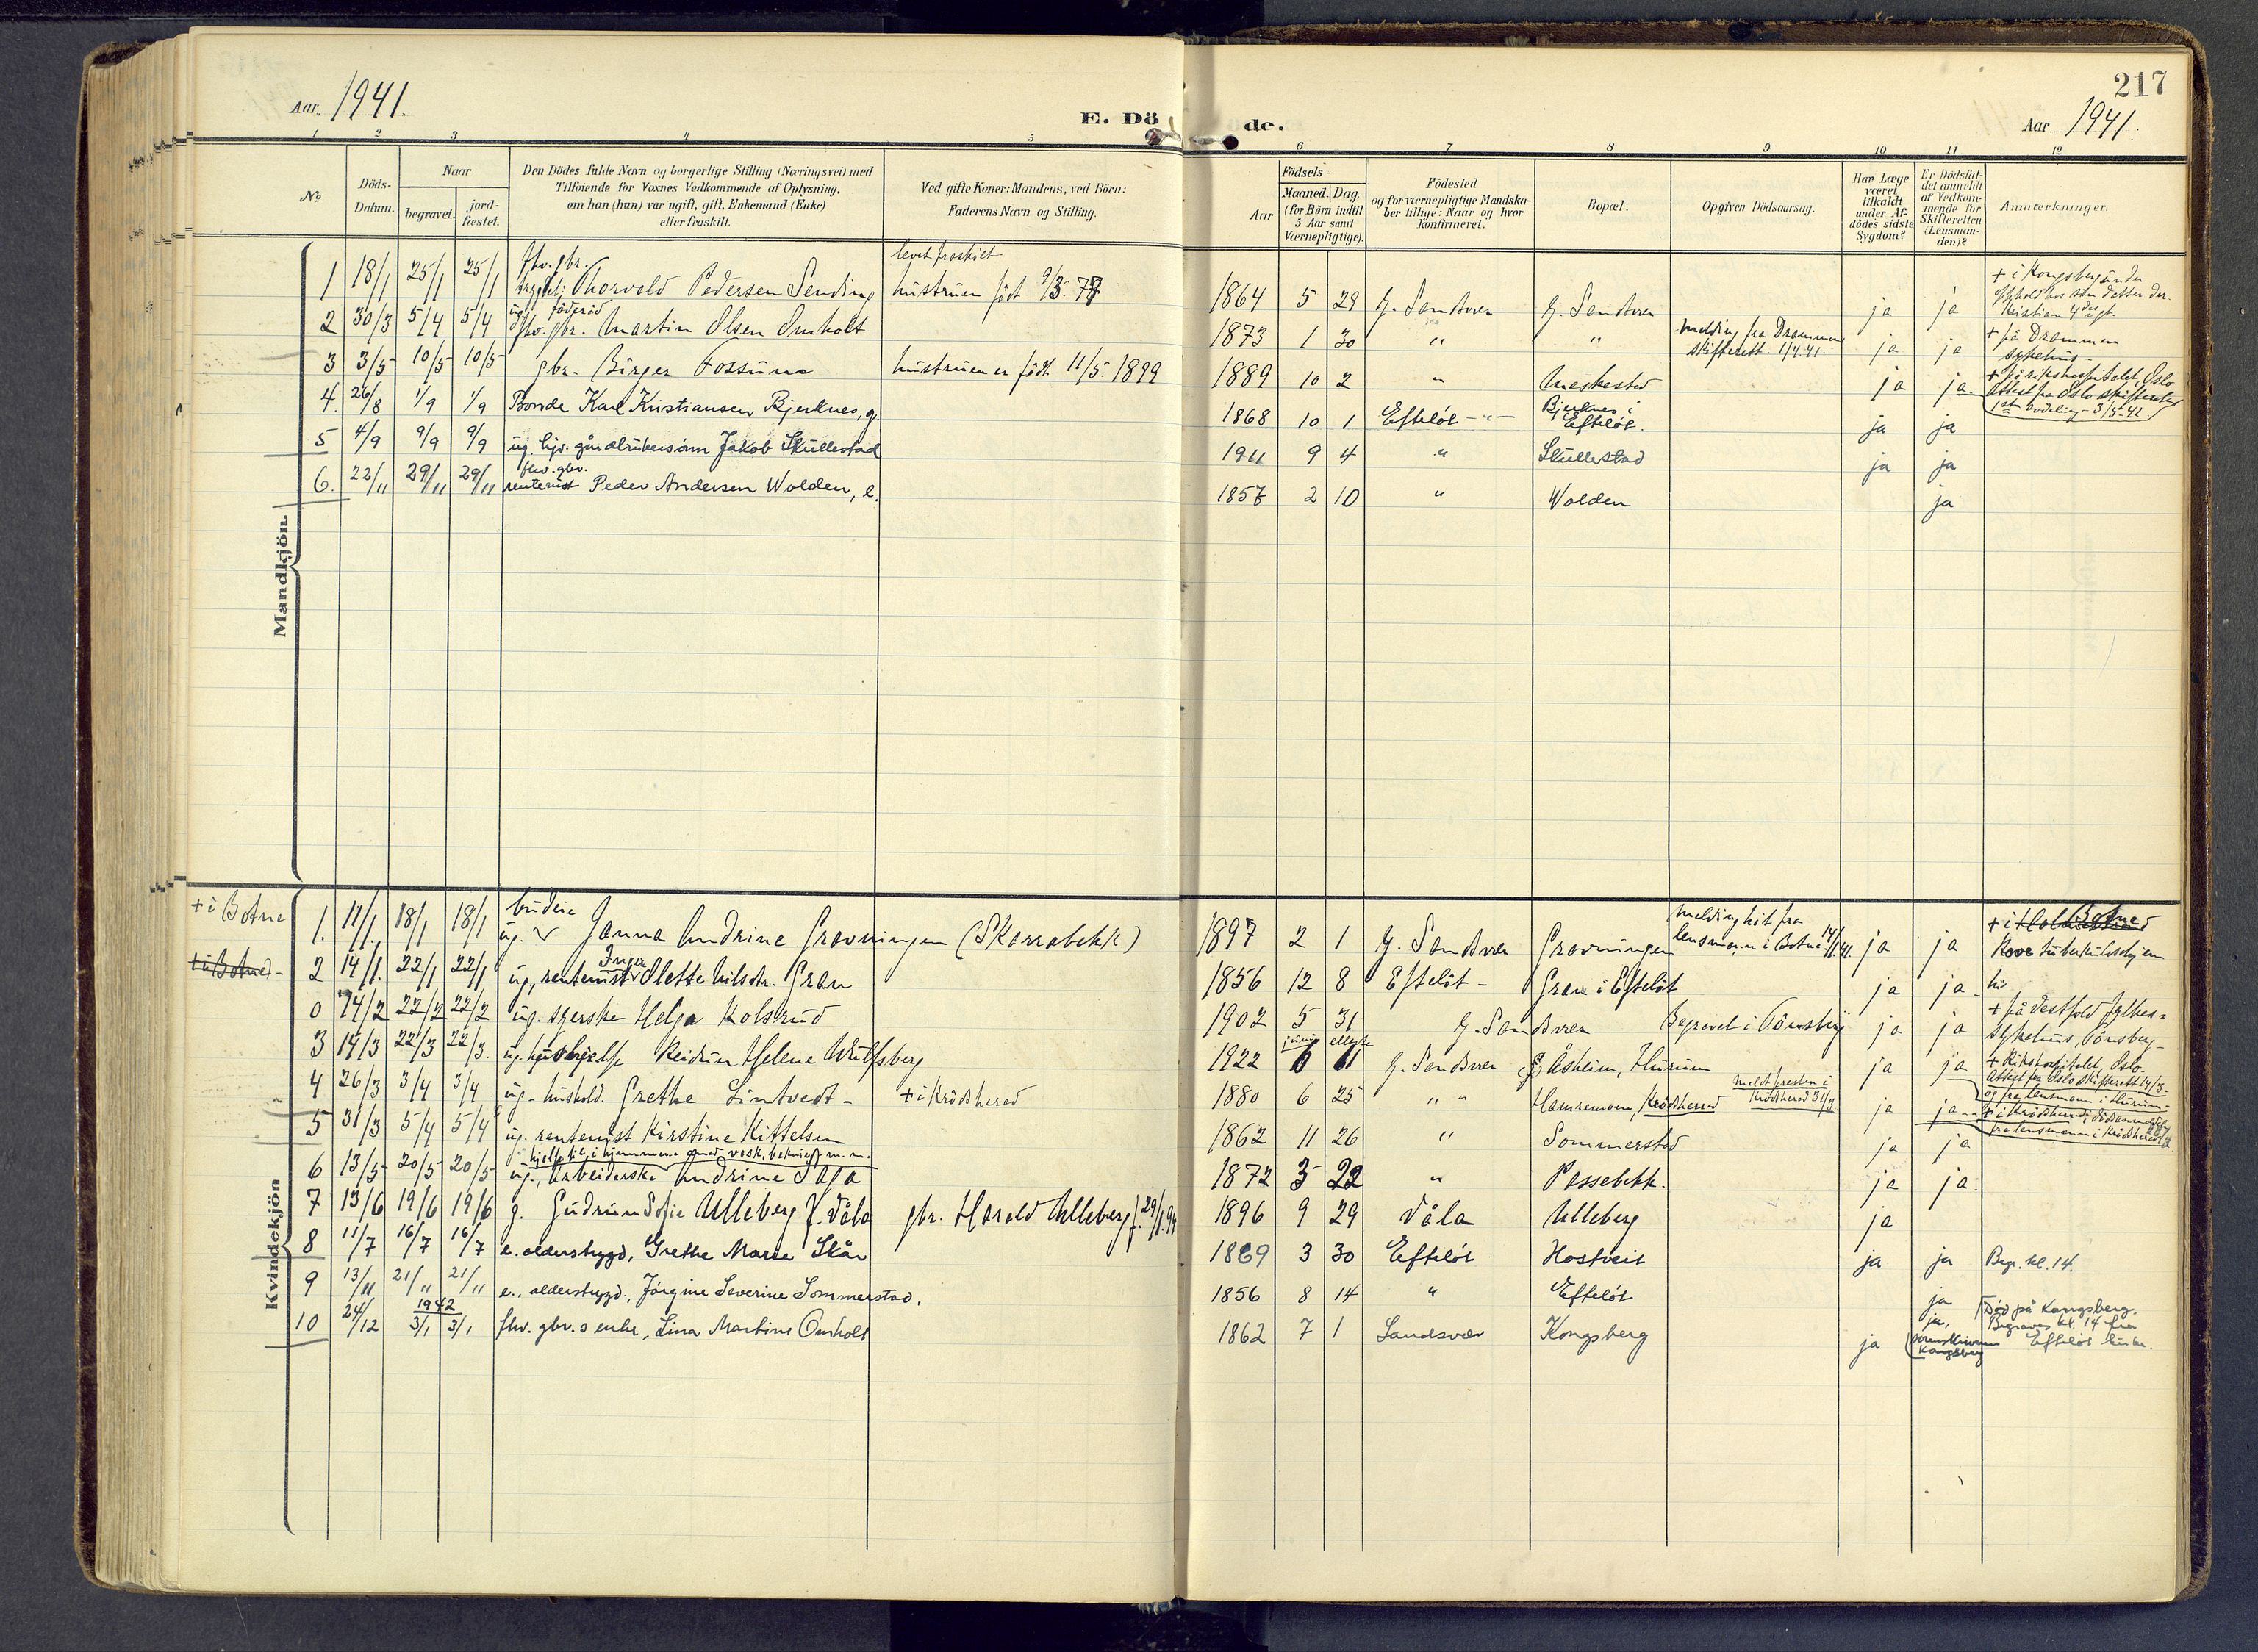 217
Aar 1941.
E. Döde.
Aar 1941.
1 2 3 4 5 6 7 8 9 10 11 12
No
Döds-Datum.
Naar
begravet.
jord-fæstet.
Den Dödes fulde Navn og borgerlige Stilling (Næringsvei) med
Tilföiende for Voxnes Vedkommende af Oplysning,
om han (hun) var ugift, gift, Enkemand (Enke)
eller fraskilt.
Ved gifte Koner: Mandens, ved Börn:
Faderens Navn og Stilling.
Födsels-
Aar
Maaned. Dag.
(for Börn indtil
5 Aar samt
Værnepligtige).
Födested
og for værnepligtige Mandska-
ber tillige: Naar og hvor
konfirmeret.
Bopæl.
Opgiven Dödsaarsag.
Har Læge
været
tilkaldt
under Af-
dödes sidste
Sygdom?
Er Dödsfal-
det anmeldt
af Vedkom-
mende for
Skifteretten
(Lensman-
den)?
Anmærkninger.
Mandkjön.
1 18/1 25/1 25/1 fhv. gbr. Thorvald Pedersen Sending levet fraskilt hustruen født 9/3. 77 1864 5 29 Y. Sandsvær Y. Sandsvær ja ja + i Kongsberg under
2 30/3 5/4 5/4 ug. föderåd fhv. gbr. Martin Olsen Omholt 1873 1 30 " " melding fra Drammen skifterett. 1/4.41. ja ja + på Drammen sykehus-
3 3/5 10/5 10/5 gbr. Birger Fossum hustruen er født 11/5.1899 1889 10 2 " Meskestad ja ja + på rikshospitalet, Oslo Attest fra Oslo skifterett 1ste avdeling - 3/5-41.
4. 26/8 1/9 1/9 Bonde Karl Kristiansen Bjerknes, g. 1868 10 1 Efteløt -"- Bjerknes i Efteløt. ja ja
5 4/9 9/9 9/9 ug. hjv. gårdbrukersønn Jakob Skullestad 1911 9 4 " Skullestad ja ja
6. 22/11 29/11 29/11 fhv. gbr. rentenist Peder Andersen Wolden, e. 1857 2 10 " Wolden ja
Kvindekjön
+ i Botne 1. 11/1. 18/1 18/1 budeie ug. Janna Andrine Gravningen (Skarrabekk) 1897 2 1 Y. Sandsvær Gravningen melding hit fra lensmann i Botne 14/1.41. ja ja + i Botne tuberkulosehjem
+ i Botne - 2 14/1. 22/1 22/1 ug., rentenist Inger Olette Nilsdtr. Gran 1856 12 8 Efteløt - Gran i Efteløt ja ja
0 14/2 22/2 22/2 ug. syerske Helga Kolsrud 1902 5 31 Y. Sandsvær Begravet i Tönsberg ja ja + på Vestfold fylkes= sykehus, Tönsberg-
3 14/3 22/3 22/3. ug. hushjelp Reidun Helene Wulfsberg 1922 juni 6 ellevte 11 Y. Sandsvær Åsheim, Hurum ja ja + Rikshospitalet, Oslo- Attest fra Oslo skifterett 14/3 - og fra lensmann i Hurum
4 26/3 3/4 3/4 ug. hushold. Grethe Lintvedt - + i Krödsherad 1880 6 25 " " Hamremoen, Krödsherad meldt presten i Krödsherad 31/3 ja ja - + i Krödsherad, dödsanmeldelse fra lensmann i Krödsherad
5 31/3 5/4 5/4 ug. rentenist Kirstine Kittelsen 1862 11 26 " Sommerstad ja ja
6 13/5 20/5 20/5 hjelp til i hjemmene med vask, bakning m.m. ug., arbeiderske Andrine Saga 1872 3 22 " Passebekk. ja ja.
7 13/6 19/6 19/6 g. Gudrun Sofie Ulleberg f. Våla gbr. Harald Ulleberg f. 29/1.94 1896 9 29 Våla Ulleberg ja
8 11/7 16/7 16/7 e. alderstrygd, Grethe Marie Skår 1869 3 30 Efteløt Hostveit ja ja Begr. kl. 14.
9 13/11 21/11 21/11 e., alderstrygd., Jörgine Severine Sommerstad. 1856 8 14 " Efteløt ja
10 24/12 1942 3/1 3/1 fhv. gbr.s enke, Lina Martine Omholt 1862 7 1 Sandsvær Kongsberg ja ja, (sorenskriveren Kongsberg Död på Kongsberg. Begraves kl. 14 fra Efteløt kirke.